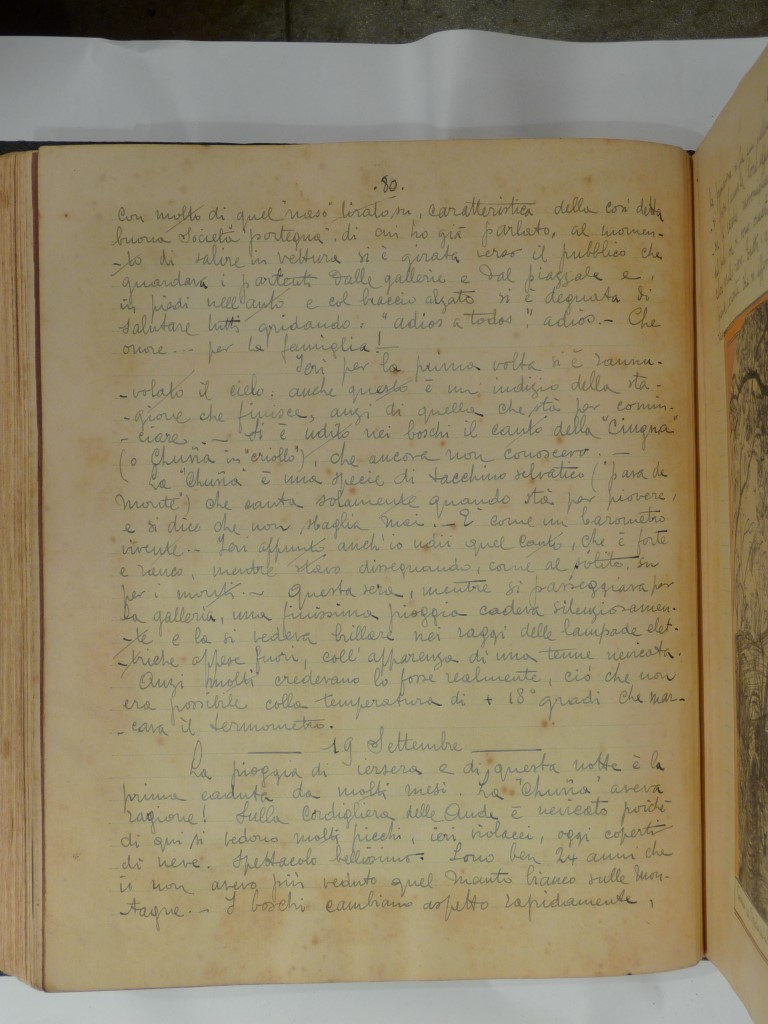 .80.
con molto di quel "naso" tirato su, caratteristica della così detta
buona Società "portegna", di cui ho già parlato, al momen-
-to di salire in vettura si è girata verso il pubblico che
guardava i partenti dalle gallerie e dal piazzale e,
in piedi nell'auto e col braccio alzato si è degnata di
salutare tutti gridando: "adios a todos", adios.- Che
onore... per la famiglia!
Ieri per la prima volta si è rannu-
-volato il cielo; anche questo è un indizio della sta-
-gione che finisce, anzi di quella che stà per comin-
-ciare. - Si è udito nei boschi il canto della "Ciugna"
(o Chuña in "criollo"), che ancora non conoscevo. -
La "Chuña" è una specie di tacchino selvatico ("pava de
monte") che canta solamente quando stà per piovere,
e si dice che non sbaglia mai. - È come un barometro
vivente. - Ieri appunto anch'io udii quel canto, che è forte
e rauco, mentre stavo disegnando, come al solito, su
per i monti. - Questa sera, mentre si passeggiava per
la galleria, una finissima pioggia cadeva silenziosamen-
-te e la si vedeva brillare nei raggi delle lampade elet-
-triche appese fuori, coll'apparenza di una tenue nevicata.
Anzi molti credevano lo fosse realmente, ciò che non
era possibile colla temperatura di + 18° gradi che mar-
-cava il termometro.
19 Settembre
La pioggia di iersera e di questa notte è la
prima caduta da molti mesi. La "Chuña" aveva
ragione! Sulla Cordigliera delle Ande è nevicato poichè
di qui si vedono molti picchi, ieri violacci, oggi coperti
di neve. Spettacolo bellissimo. Sono ben 24 anni che
io non avevo più veduto quel manto bianco sulle mon-
tagne. - I boschi cambiano aspetto rapidamente,